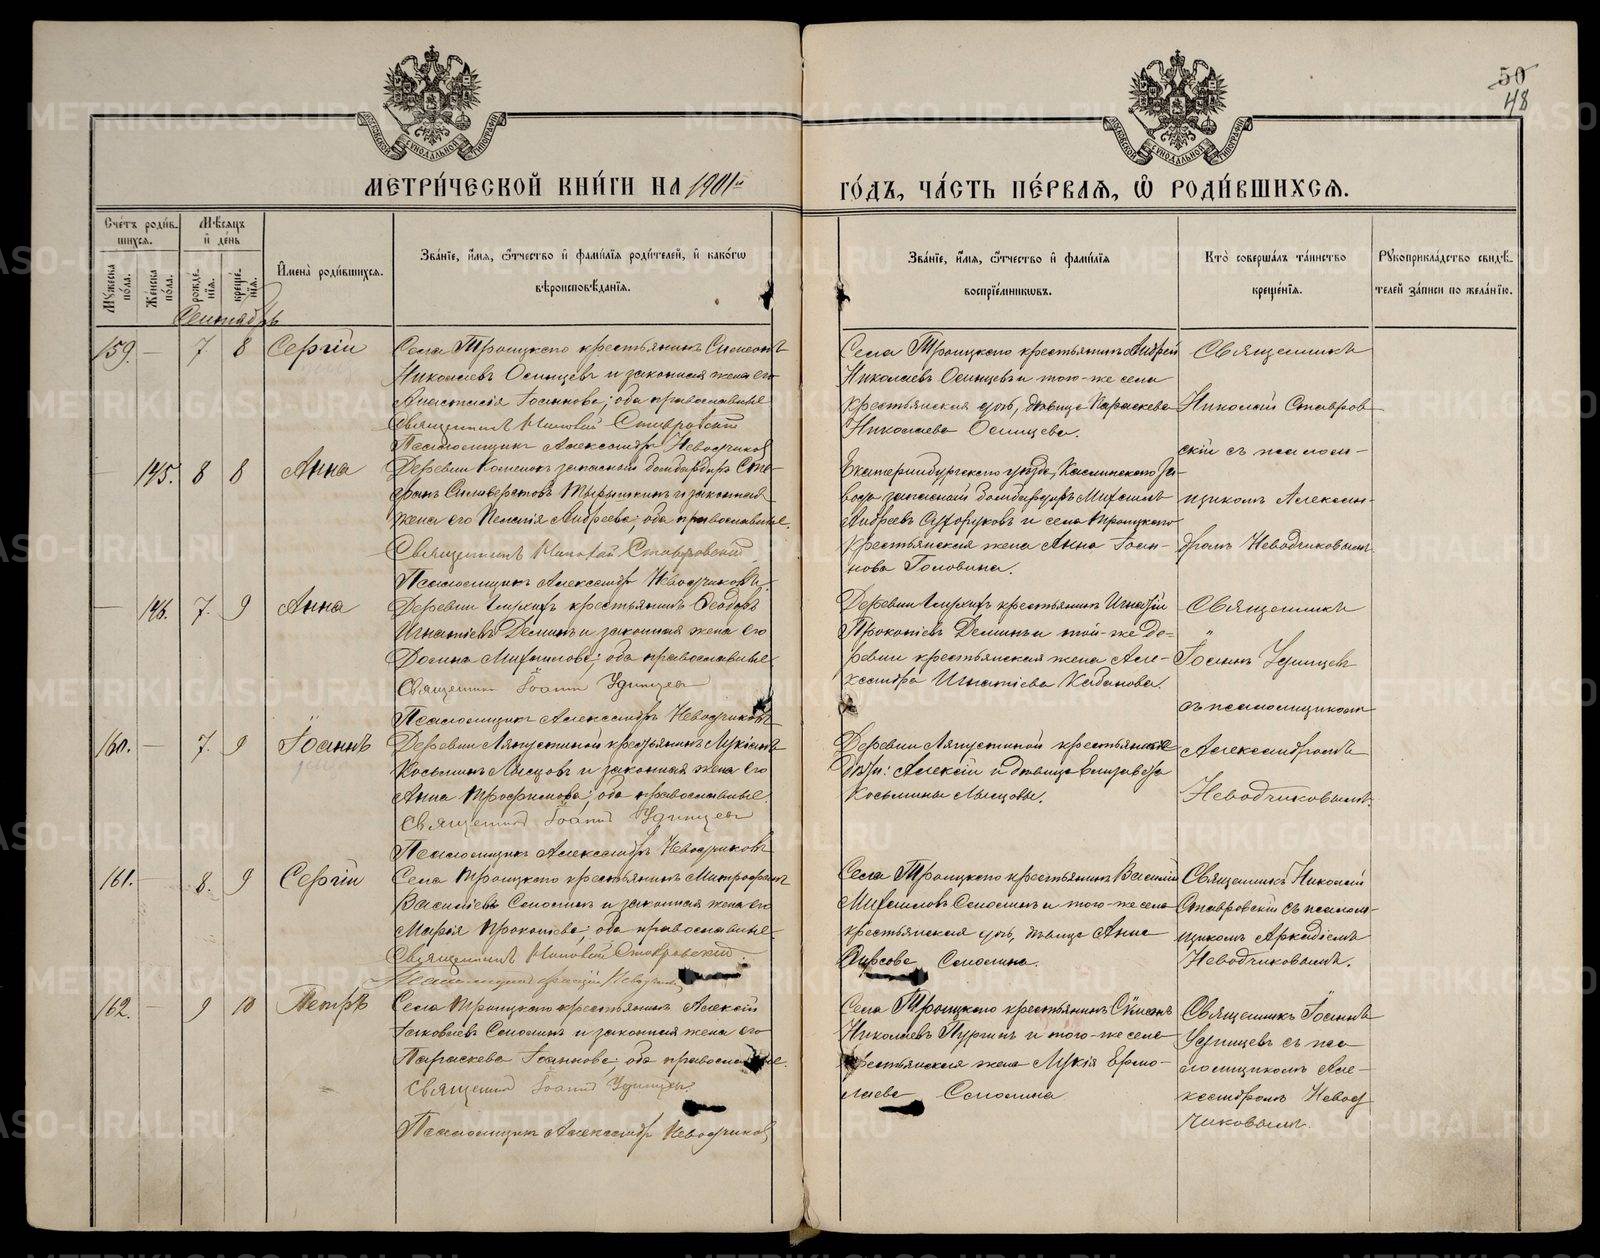 50
48
МОСКОВСКОЙ СѴНОДАЛЬНОЙ ТИПОГРАФІИ
МОСКОВСКОЙ СѴНОДАЛЬНОЙ ТИПОГРАФІИ
МЕТРИ́ЧЕСКОЙ КНИ́ГИ НА 1901й ГО́ДЪ, ЧА́СТЬ ПЕ́РВАѦ, Ѽ РОДИ́ВШИХСѦ.
Сче́тъ роди́в-
шихсѧ.
Мѣ́сѧцъ
и҆ де́нь
И҆мена̀ роди́вшихсѧ.
Зва́нїе, и҆́мѧ, ѻ҆́тчество и҆ фами́лїѧ роди́телей, и҆ како́гѡ
вѣроисповѣ́данїѧ.
Зва́нїе, и҆́мѧ, ѻ҆́тчество и҆ фами́лїѧ
воспрїе́мникѡвъ.
Кто̀ соверша́лъ та́инство
креще́нїѧ.
Рꙋкоприкла́дство свидѣ́-
телей за́писи по жела́нїю.
Мꙋ́жеска
по́ла.
Же́нска
по́ла.
рожде́-
нїѧ.
креще́-
нїѧ.
Сентябрь
159. — 7 8 Сергій
Села Троицкаго крестьянинъ Симеонъ
Николаевъ Осинцевъ и законная жена его
Анастасія Іоаннова; оба православные
Священникъ Николай Ставровскій
Псаломщикъ Александръ Неводчиковъ
Села Троицкаго крестьянинъ Андрей
Николаевъ Осинцевъ и того-же села
крестьянская дочь, дѣвица Параскева
Николаева Осинцева.
Священникъ
Николай Ставров-
скій съ псалом-
щикомъ Алексан-
дромъ Неводчиковымъ
— 145. 8 8 Анна
Деревни запасный бомбардиръ Сте-
фанъ Силиверстовъ и законная
жена его Пелагія Андреева; оба православные.
Священникъ Николай Ставровскій
Псаломщикъ Александръ Неводчиковъ
Екатеринбургскаго уѣзда, Каслинскаго За-
вода запасный бомбардиръ Михаилъ
Андреевъ и села Троицкаго
крестьянская жена Анна Іоан-
нова Головина.
— 146. 7. 9 Анна
Деревни крестьянинъ Ѳеодоръ
Игнатіевъ Деминъ и законная жена его
Домна Михаилова; оба православные
Священникъ Іоаннъ Удинцевъ
Псаломщикъ Александръ Неводчиковъ
Деревни крестьянинъ Игнатій
Прокопіевъ Деминъ и той-же де-
ревни крестьянская жена Але-
ксандра Игнатіева Кабанова.
Священникъ
Іоаннъ Удинцевъ
съ псаломщикомъ
Александромъ
Неводчиковымъ.
160. — 7. 9 Іоаннъ
Деревни Ляпустиной крестьянинъ Лукіанъ
Косьминъ и законная жена его
Анна Трофимова; оба православные.
Священникъ Іоаннъ Удинцевъ
Псаломщикъ Александръ Неводчиковъ
Деревни Ляпустиной крестьянскіе
дѣти: Алексій и дѣвица Елизавета
Косьмины
161. — 8. 9 Сергій
Села Троицкаго крестьянинъ Митрофанъ
Василіевъ и законная жена его
Марія Прокопіева; оба православные.
Священникъ Николай Ставровскій.
Села Троицкаго крестьянинъ Василій
Михаиловъ и того-же села
крестьянская дочь, дѣвица Анна
Фирсова
Священникъ Николай
Ставровскій съ псалом-
щикомъ Аркадіемъ
Неводчиковымъ.
162. — 9 10 Петръ
Села Троицкаго крестьянинъ Алексій
Іаковлевъ и законная жена его
Параскева Іоаннова; оба православные.
Священникъ Іоаннъ Удинцевъ
Псаломщикъ Александръ Неводчиковъ
Села Троицкаго крестьянинъ Симеонъ
Николаевъ и того-же села
крестьянская жена Лукія Ермо-
лаева
Священникъ Іоаннъ
Удинцевъ съ пса-
ломщикомъ Але-
ксандромъ Невод
чиковымъ.
METRIKI.GASO-URAL.RU